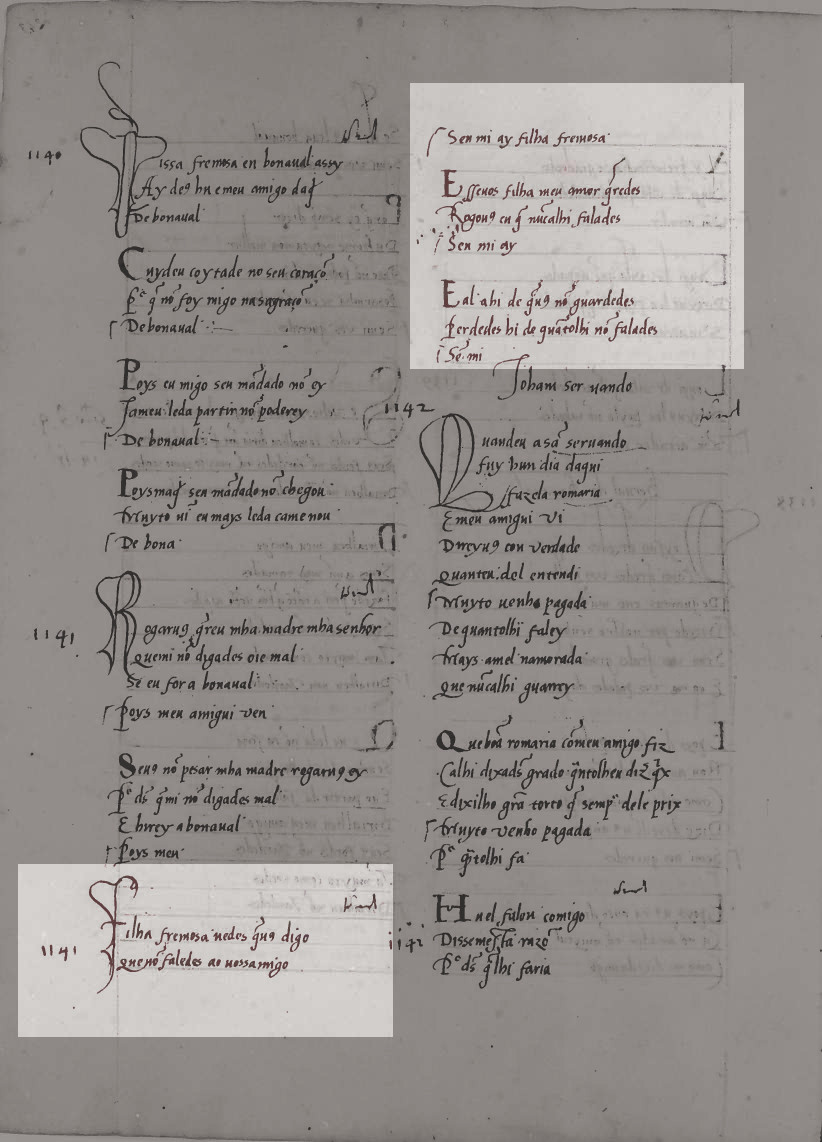 1140
Fissa fremosa en bonaual assy
Ay deꝰ hu e meu amigo daq̃
De bonaual
Cuydeu coytade no seu coraçõ
Pᵉ q̃ nõ foy migo na sagraçõ
De bonaual
Poys eu migo seu mãdado nõ ey
Ja meu leda partir nõ poderey
De bonaual
Poys maq̃ seu mãdado nõ chegou
Muyto ui eu mays leda ca me uou
De bona
1141
Rogaruꝰ q̃reu mha madre mha senhor
Que mi nõ digades oie mal
Se eu for a bonaual
Poys meu amigui uen
Seuꝰ nõ pesar mha madre rogaruꝰ ey
Pᵉ ds̃ q̃ mi nõ digades mal
E hirey a bonaual
Poys meu
1141
Filha fremosa uedes q̃uꝰ digo
que nõ faledes ao uossamigo
Sen mi ay filha fremosa
E sseuos filha meu amor q̃redes
Rogouꝰ eu q̃ nũcalhi falades
Sen mi ay
E al a hi de q̃uꝰ nõ guardedes
Perdedes hi de quãtolhi nõ falades
Sẽ mi
Joham seruando
1142
Quandeu a sã seruando
fuy hun dia daqui
ffazela romaria
E meu amigui ui
Direyuꝰ con verdade
Quanteu del entendi
Muyto uenho pagada
De quantolhi faley
Mays amel namorada
Que nũcalhi guarrey
Que boã romaria cõ meu amigo fiz
Calhi dixads̃ grado q̃ntolheu diz̃ q̃x
E dixilho grã torto q̃ semp̃ dele prix
Muyto venho pagada
Pᵉ q̃tolhi fa
1142
Hu el falou comigo
Disseme sta razõ
Pᵉ ds̃ q̃ lhi faria